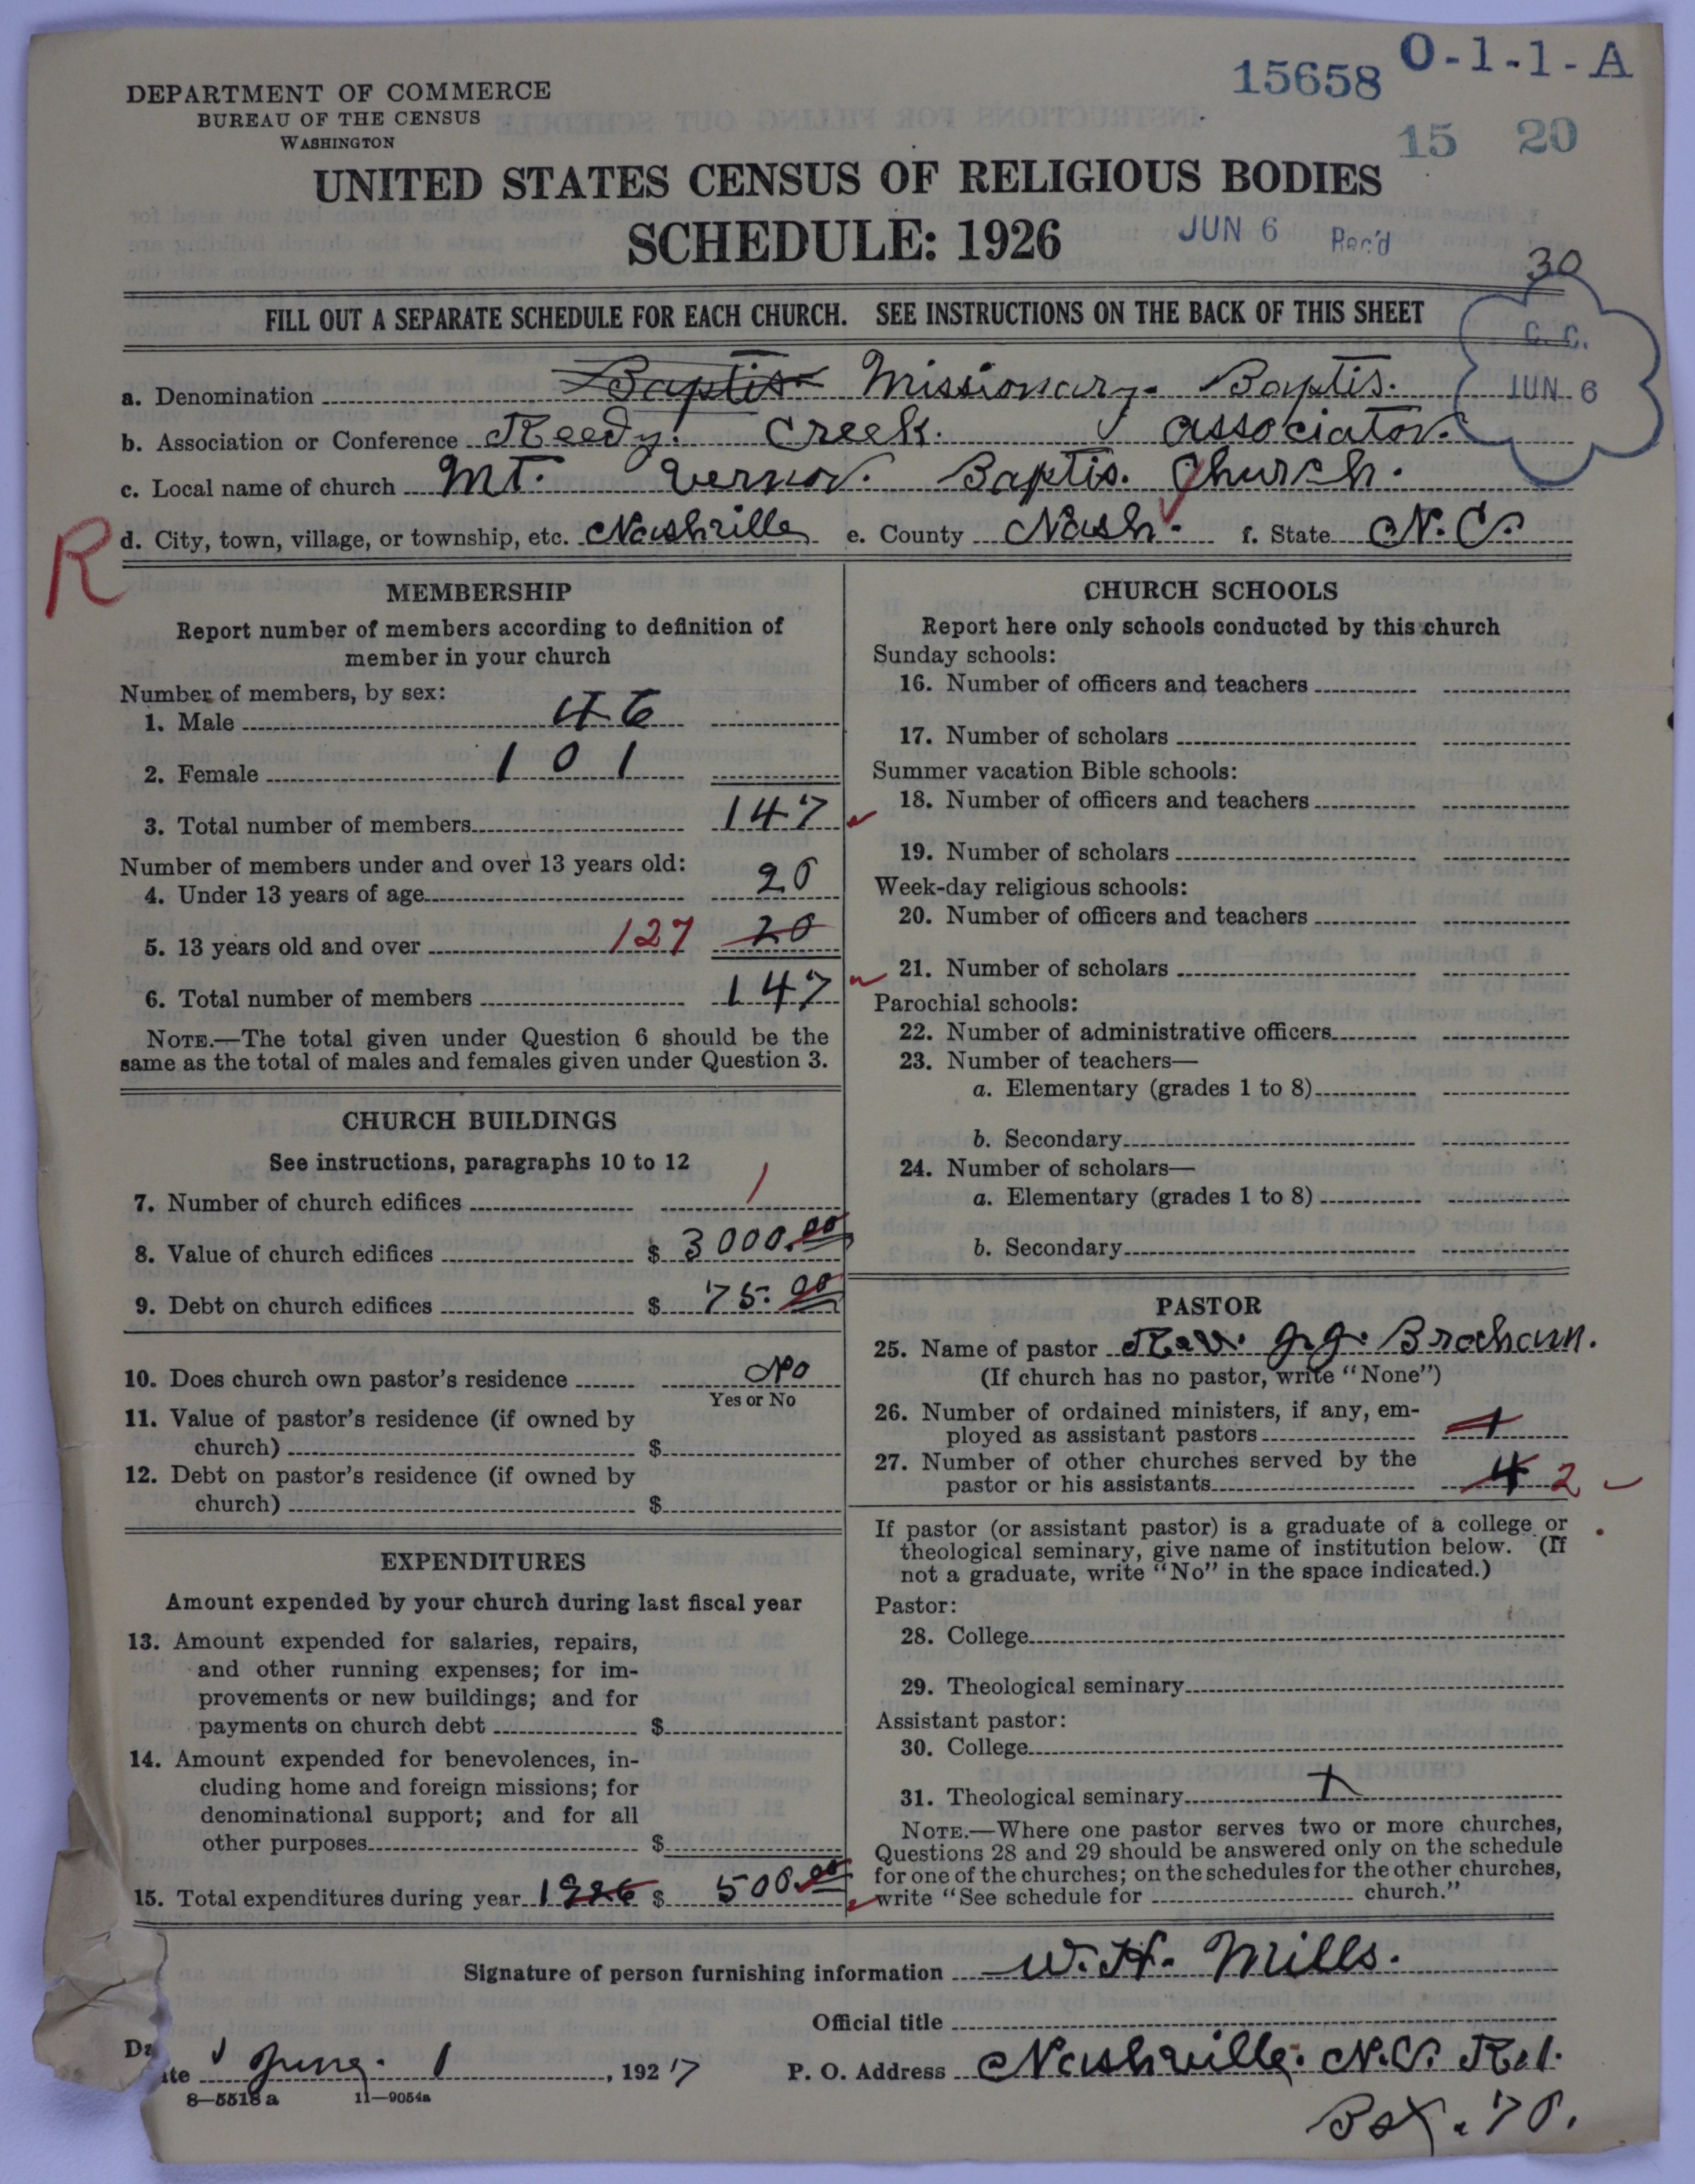 15658 O-1-1-A
15 20
DEPARTMENT OF COMMERCE
BUREAU OF THE CENSUS
WASHINGTON
UNITED STATES CENSUS OF RELIGIOUS BODIES
SCHEDULE: 1926
JUN 6 Rec'd
30
FILL OUT A SEPARATE SCHEDULE FOR EACH CHURCH. SEE INSTRUCTIONS ON THE BACK OF THIS SHEET
C. C.
JUN 6
a. Denomination Baptis Missionary. Baptis.
b. Association or Conference Reedy. Creek. Associaton.
c. Local name of church Mt. Vernon. Baptis. Church.
R
d. City, town, village, or township, etc. Nashville e. County Nash. f. State N.C.
MEMBERSHIP
Report number of members according to definition of
member in your church
Number of members, by sex:
1. Male 46
2. Female 101
3. Total number of members 147
Number of members under and over 13 years old:
4. Under 13 years of age 20
5. 13 years old and over 127 20
6. Total number of members 147
NOTE.—The total given under Question 6 should be the
same as the total of males and females given under Question 3.
CHURCH BUILDINGS
See instructions, paragraphs 10 to 12
7. Number of church edifices 1
8. Value of church edifices $ 3000.00
9. Debt on church edifices $ 75.00
10. Does church own pastor's residence No
Yes or No
11. Value of pastor's residence (if owned by
church) $
12. Debt on pastor's residence (if owned by
church) $
EXPENDITURES
Amount expended by your church during last fiscal year
13. Amount expended for salaries, repairs,
and other running expenses; for im-
provements or new buildings; and for
payments on church debt $
14. Amount expended for benevolences, in-
cluding home and foreign missions; for
denominational support; and for all
other purposes $
15. Total expenditures during year 1926 $ 500.00
CHURCH SCHOOLS
Report here only schools conducted by this church
Sunday schools:
16. Number of officers and teachers
17. Number of scholars
Summer vacation Bible schools:
18. Number of officers and teachers
19. Number of scholars
Week-day religious schools:
20. Number of officers and teachers
21. Number of scholars
Parochial schools:
22. Number of administrative officers
23. Number of teachers—
a. Elementary (grades 1 to 8)
b. Secondary
24. Number of scholars—
a. Elementary (grades 1 to 8)
b. Secondary
PASTOR
25. Name of pastor Rev.
(If church has no pastor, write "None")
26. Number of ordained ministers, if any, em-
ployed as assistant pastors 1
27. Number of other churches served by the
pastor or his assistants 4 2
If pastor (or assistant pastor) is a graduate of a college or
theological seminary, give name of institution below. (If
not a graduate, write "No" in the space indicated.)
Pastor:
28. College
29. Theological seminary
Assistant pastor:
30. College
31. Theological seminary X
NOTE.—Where one pastor serves two or more churches,
Questions 28 and 29 should be answered only on the schedule
for one of the churches; on the schedules for the other churches,
write "See schedule for church."
Signature of person furnishing information W. H. Mills.
Official title
Date June. 1, 1927 P. O. Address Nashville. N.C. R.1.
8—5518 a 11—9054a
Box. 70.